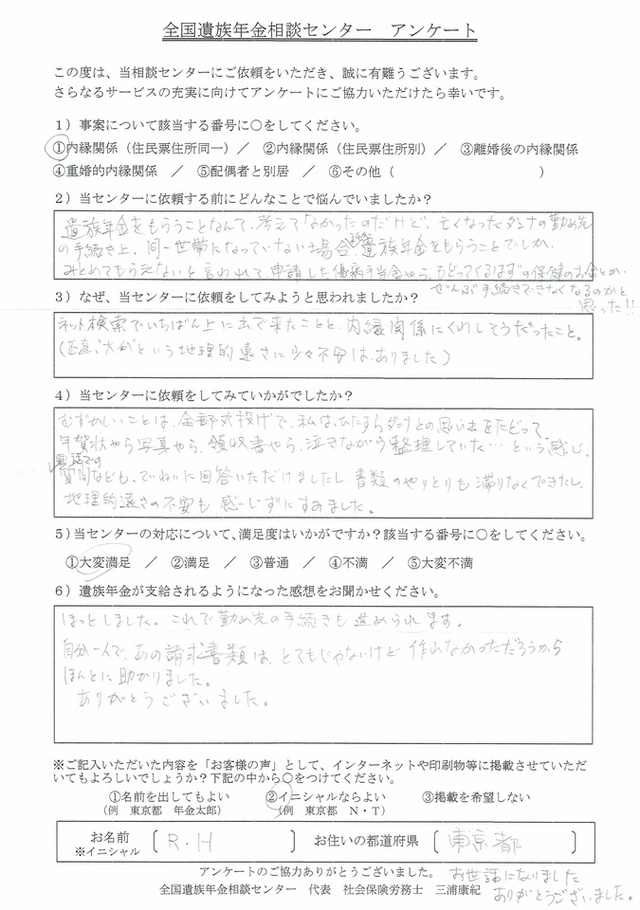 全国遺族年金相談センター　アンケート
この度は、当相談センターにご依頼をいただき、誠に有難うございます。
さらなるサービスの充実に向けてアンケートにご協力いただけたら幸いです。
1）事案について該当する番号に○をしてください。
①内縁関係（住民票住所同一）／　②内縁関係（住民票住所別）／　③離婚後の内縁関係
④重婚的内縁関係　／　⑤配偶者と別居　／　⑥その他（　　　　　　　　　）
2）当センターに依頼する前にどんなことで悩んでいましたか？
遺族年金をもらうことなんて、考えてなかったのだけど、亡くなったダンナの勤め先
の手続き上、同一世帯になっていない場合、遺族年金をもらうことでしか、
みとめてもらえないと言われて申請した傷病手当金やら、もどってくるはずの保健のお金とか、
ぜんぶ手続きできなくなるのかと
思った!!
3）なぜ、当センターに依頼をしてみようと思われましたか？
ネット検索でいちばん上に出て来たことと、内縁関係にくわしそうだったこと。
（正直、大分という地理的遠さに少々不安は、ありました）
4）当センターに依頼をしてみていかがでしたか？
むずかしいことは、全部丸投げで、私は、ひたすらダンナとの思い出をたどって、
年賀状やら写真やら、領収書やら、泣きながら整理していた…という感じ。
電話での
質問なども、ていねいに回答いただけましたし、書類のやりとりも滞りなくできたし、
地理的遠さの不安も感じずにすみました。
5）当センターの対応について、満足度はいかがですか？該当する番号に○をしてください。
①大変満足　／　②満足　／　③普通　／　④不満　／　⑤大変不満
6）遺族年金が支給されるようになった感想をお聞かせください。
ほっとしました。これで勤め先の手続きも進められます。
自分一人で、あの請求書類は、とてもじゃないけど作れなかっただろうから
ほんとに助かりました。
ありがとうございました。
※ご記入いただいた内容を「お客様の声」として、インターネットや印刷物等に掲載させていただ
いてもよろしいでしょうか？下記の中から○をつけてください。
①名前を出してもよい　　②イニシャルならよい　　③掲載を希望しない
（例　東京都　年金太郎）　（例　東京都　N・T）
お名前　〔 R.H 〕　お住いの都道府県　〔 東京都 〕
※イニシャル
アンケートのご協力ありがとうございました。
お世話になりました
全国遺族年金相談センター　代表　社会保険労務士　三浦康紀
ありがとうございました。